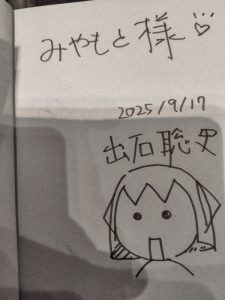 みやもと様♡
2025/9/17
出石聡史